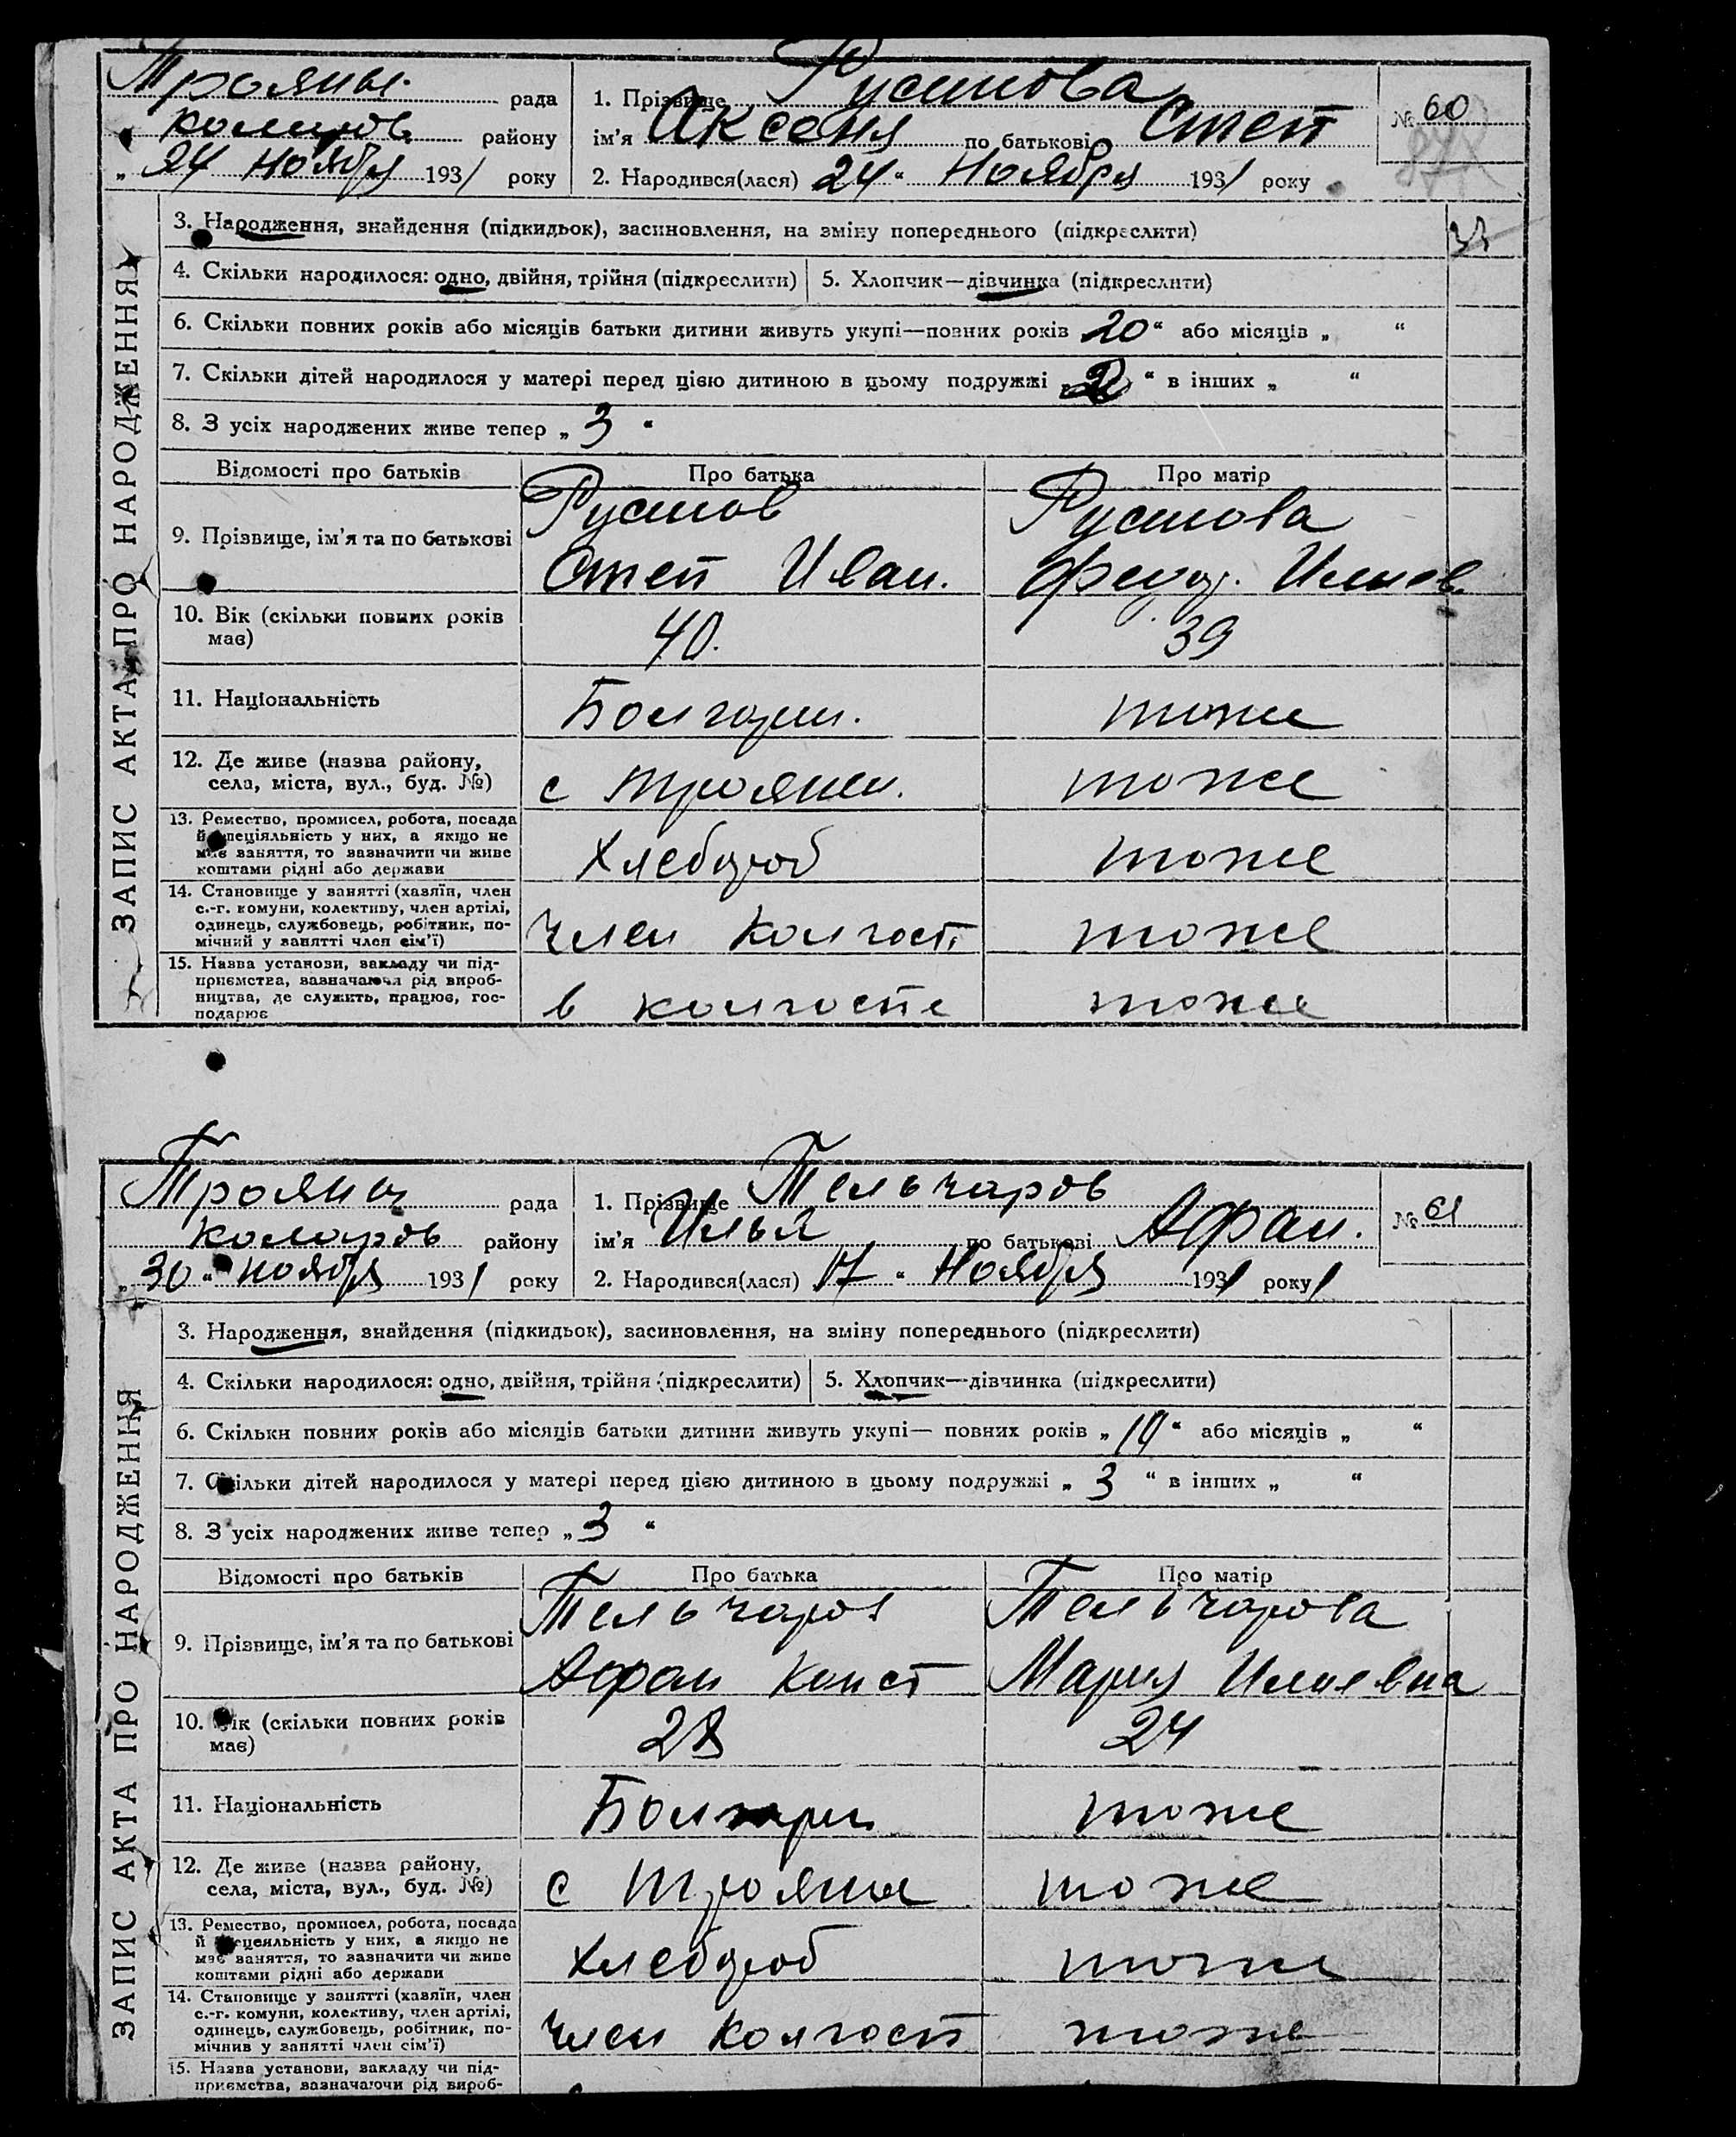 ЗАПИС АКТА ПРО НАРОДЖЕННЯ
Трояны рада
Комаров району
„ 24 Ноября 1931 року
1. Прізвище Русинова
ім'я Аксеня по батькові Степ
2. Народився(лася) 24 “ Ноября 1931 року
№ 60
3. Народження, знайдення (підкидьок), засиновлення, на зміну попереднього (підкреслити)
4. Скільки народилося: одно, двійня, трійня (підкреслити)
5. Хлопчик—дівчинка (підкреслити)
6. Скільки повних років або місяців батьки дитини живуть укупі—повних років 20 “ або місяців „ “
7. Скільки дітей народилося у матері перед цією дитиною в цьому подружжі „ 2 “ в інших „ “
8. З усіх народжених живе тепер „ 3 “
Відомості про батьків Про батька Про матір
9. Прізвище, ім'я та по батькові
Русинов
Степ Иван.
Русинова
Федор. Илиев.
10. Вік (скільки повних років має) 40. 39
11. Національність Болгарин. тоже
12. Де живе (назва району, села, міста, вул., буд. №) с Трояны. тоже
13. Ремество, промисел, робота, посада
й спеціяльність у них, а якщо не
має заняття, то зазначити чи живе
коштами рідні або держави
Хлебороб тоже
14. Становище у занятті (хазяїн, член
с.-г. комуни, колективу, член артілі,
одинець, службовець, робітник, по-
мічний у занятті член сім'ї)
Член Колгосп тоже
15. Назва установи, закладу чи під-
приємства, зазначаючи рід вироб-
ництва, де служить, працює, гос-
подарює
в колгоспе тоже
ЗАПИС АКТА ПРО НАРОДЖЕННЯ
Трояны рада
Комаров району
„ 30 “ ноября 1931 року
1. Прізвище Тельчаров
ім'я Илья по батькові Афан.
2. Народився(лася) 17 “ Ноября 1931 року
№ 61
3. Народження, знайдення (підкидьок), засиновлення, на зміну попереднього (підкреслити)
4. Скільки народилося: одно, двійня, трійня (підкреслити)
5. Хлопчик—дівчинка (підкреслити)
6. Скільки повних років або місяців батьки дитини живуть укупі— повних років „ 10 “ або місяців „ “
7. Скільки дітей народилося у матері перед цією дитиною в цьому подружжі „ 3 “ в інших „ “
8. З усіх народжених живе тепер „ 3 “
Відомості про батьків Про батька Про матір
9. Прізвище, ім'я та по батькові
Тельчаров
Афан Конст
Тельчарова
Мария Илиевна
10. Вік (скільки повних років має) 28 24
11. Національність Болгарин тоже
12. Де живе (назва району, села, міста, вул., буд. №) с Трояны тоже
13. Ремество, промисел, робота, посада
й спецеяльність у них, а якщо не
має заняття, то зазначити чи живе
коштами рідні або держави
Хлебороб тоже
14. Становище у занятті (хазяїн, член
с.-г. комуни, колективу, член артілі,
одинець, службовець, робітник, по-
мічнив у занятті член сім'ї)
Член Колгосп тоже
15. Назва установи, закладу чи під-
приємства, вазначаючи рід вироб-